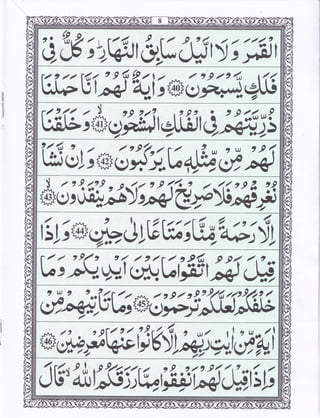 8
الْقَمَرَ وَلَا الَّيْلُ سَابِقُ النَّهَارِ ؕ وَكُلٌّ فِىْ
فَلَكٍ يَّسْبَحُوْنَ 40 وَاٰيَةٌ لَّهُمْ اَنَّا حَمَلْنَا
ذُرِّيَّتَهُمْ فِى الْفُلْكِ الْمَشْحُوْنِ ۙ 41 وَخَلَقْنَا
لَهُمْ مِّنْ مِّثْلِهٖ مَا يَرْكَبُوْنَ 42 وَاِنْ نَّشَاْ
نُغْرِقْهُمْ فَلَا صَرِيْخَ لَهُمْ وَلَا هُمْ يُنْقَذُوْنَ ۙ 43
اِلَّا رَحْمَةً مِّنَّا وَمَتَاعًا اِلٰى حِيْنٍ 44 وَاِذَا
قِيْلَ لَهُمُ اتَّقُوْا مَا بَيْنَ اَيْدِيْكُمْ وَمَا
خَلْفَكُمْ لَعَلَّكُمْ تُرْحَمُوْنَ 45 وَمَا تَاْتِيْهِمْ مِّنْ
اٰيَةٍ مِّنْ اٰيٰتِ رَبِّهِمْ اِلَّا كَانُوْا عَنْهَا مُعْرِضِيْنَ 46
وَاِذَا قِيْلَ لَهُمْ اَنْفِقُوْا مِمَّا رَزَقَكُمُ اللّٰهُ ۙ قَالَ